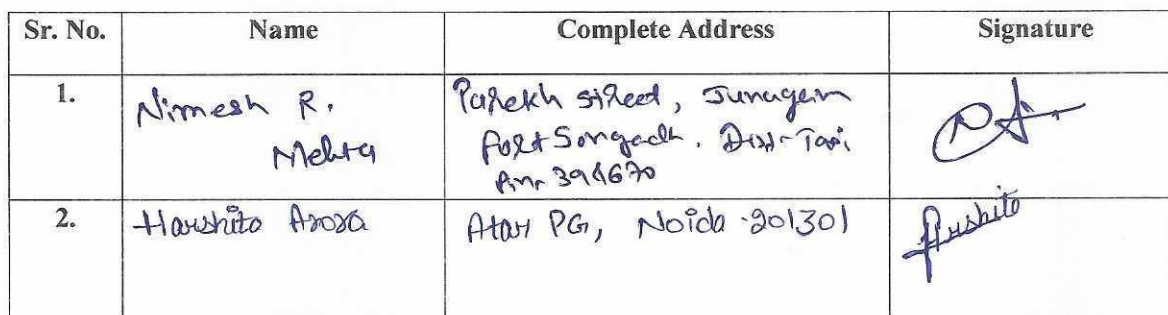 Sr. No. Name Complete Address Signature
1. Nimesh R. Mehta Parekh street, Junagam
Fort Songadh. Dist-Tapi,
Pin 394670
2. Harshita Arora Atav PG, Noida-201301 Arshita